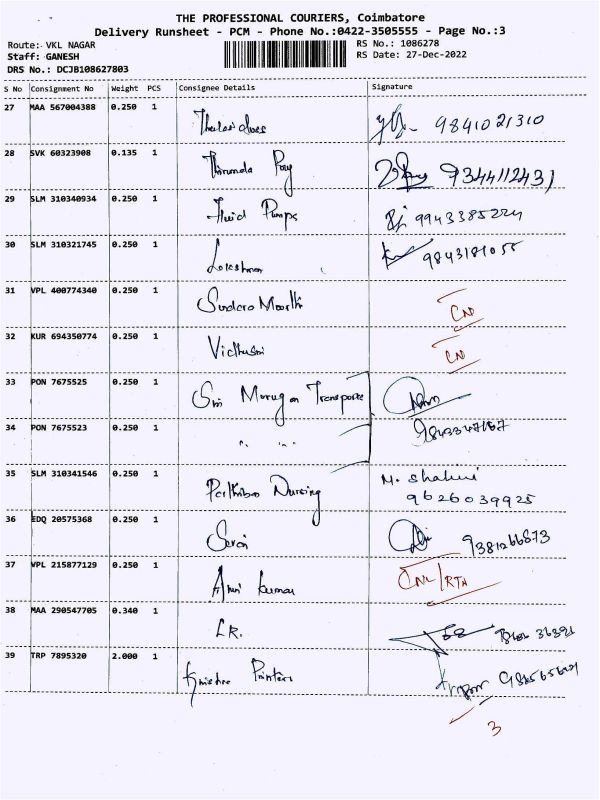 THE PROFESSIONAL COURIERS, Coimbatore
Delivery Runsheet - PCM - Phone No.:0422-3505555 - Page No.:3
Route: VKL NAGAR RS No.: 1086278
Staff: GANESH RS Date: 27-Dec-2022
DRS No.: DCJB108627803
S No Consignment No Weight PCS Consignee Details Signature
27 MAA 567004388 0.250 1
9841021310
28 SVK 60323908 0.135 1
9344112431
29 SLM 310340934 0.250 1 Fluid Pumps
9943385224
30 SLM 310321745 0.250 1
31 VPL 400774340 0.250 1
32 KUR 694350774 0.250 1
33 PON 7675525 0.250 1 Sri Murugan Transports
34 PON 7675523 0.250 1 " " "
35 SLM 310341546 0.250 1 Nursing M. Shalini
9626039925
36 EDQ 20575368 0.250 1
37 VPL 215877129 0.250 1 kumar
38 MAA 290547705 0.340 1 L.R.
39 TRP 7895320 2.000 1 Printers
3